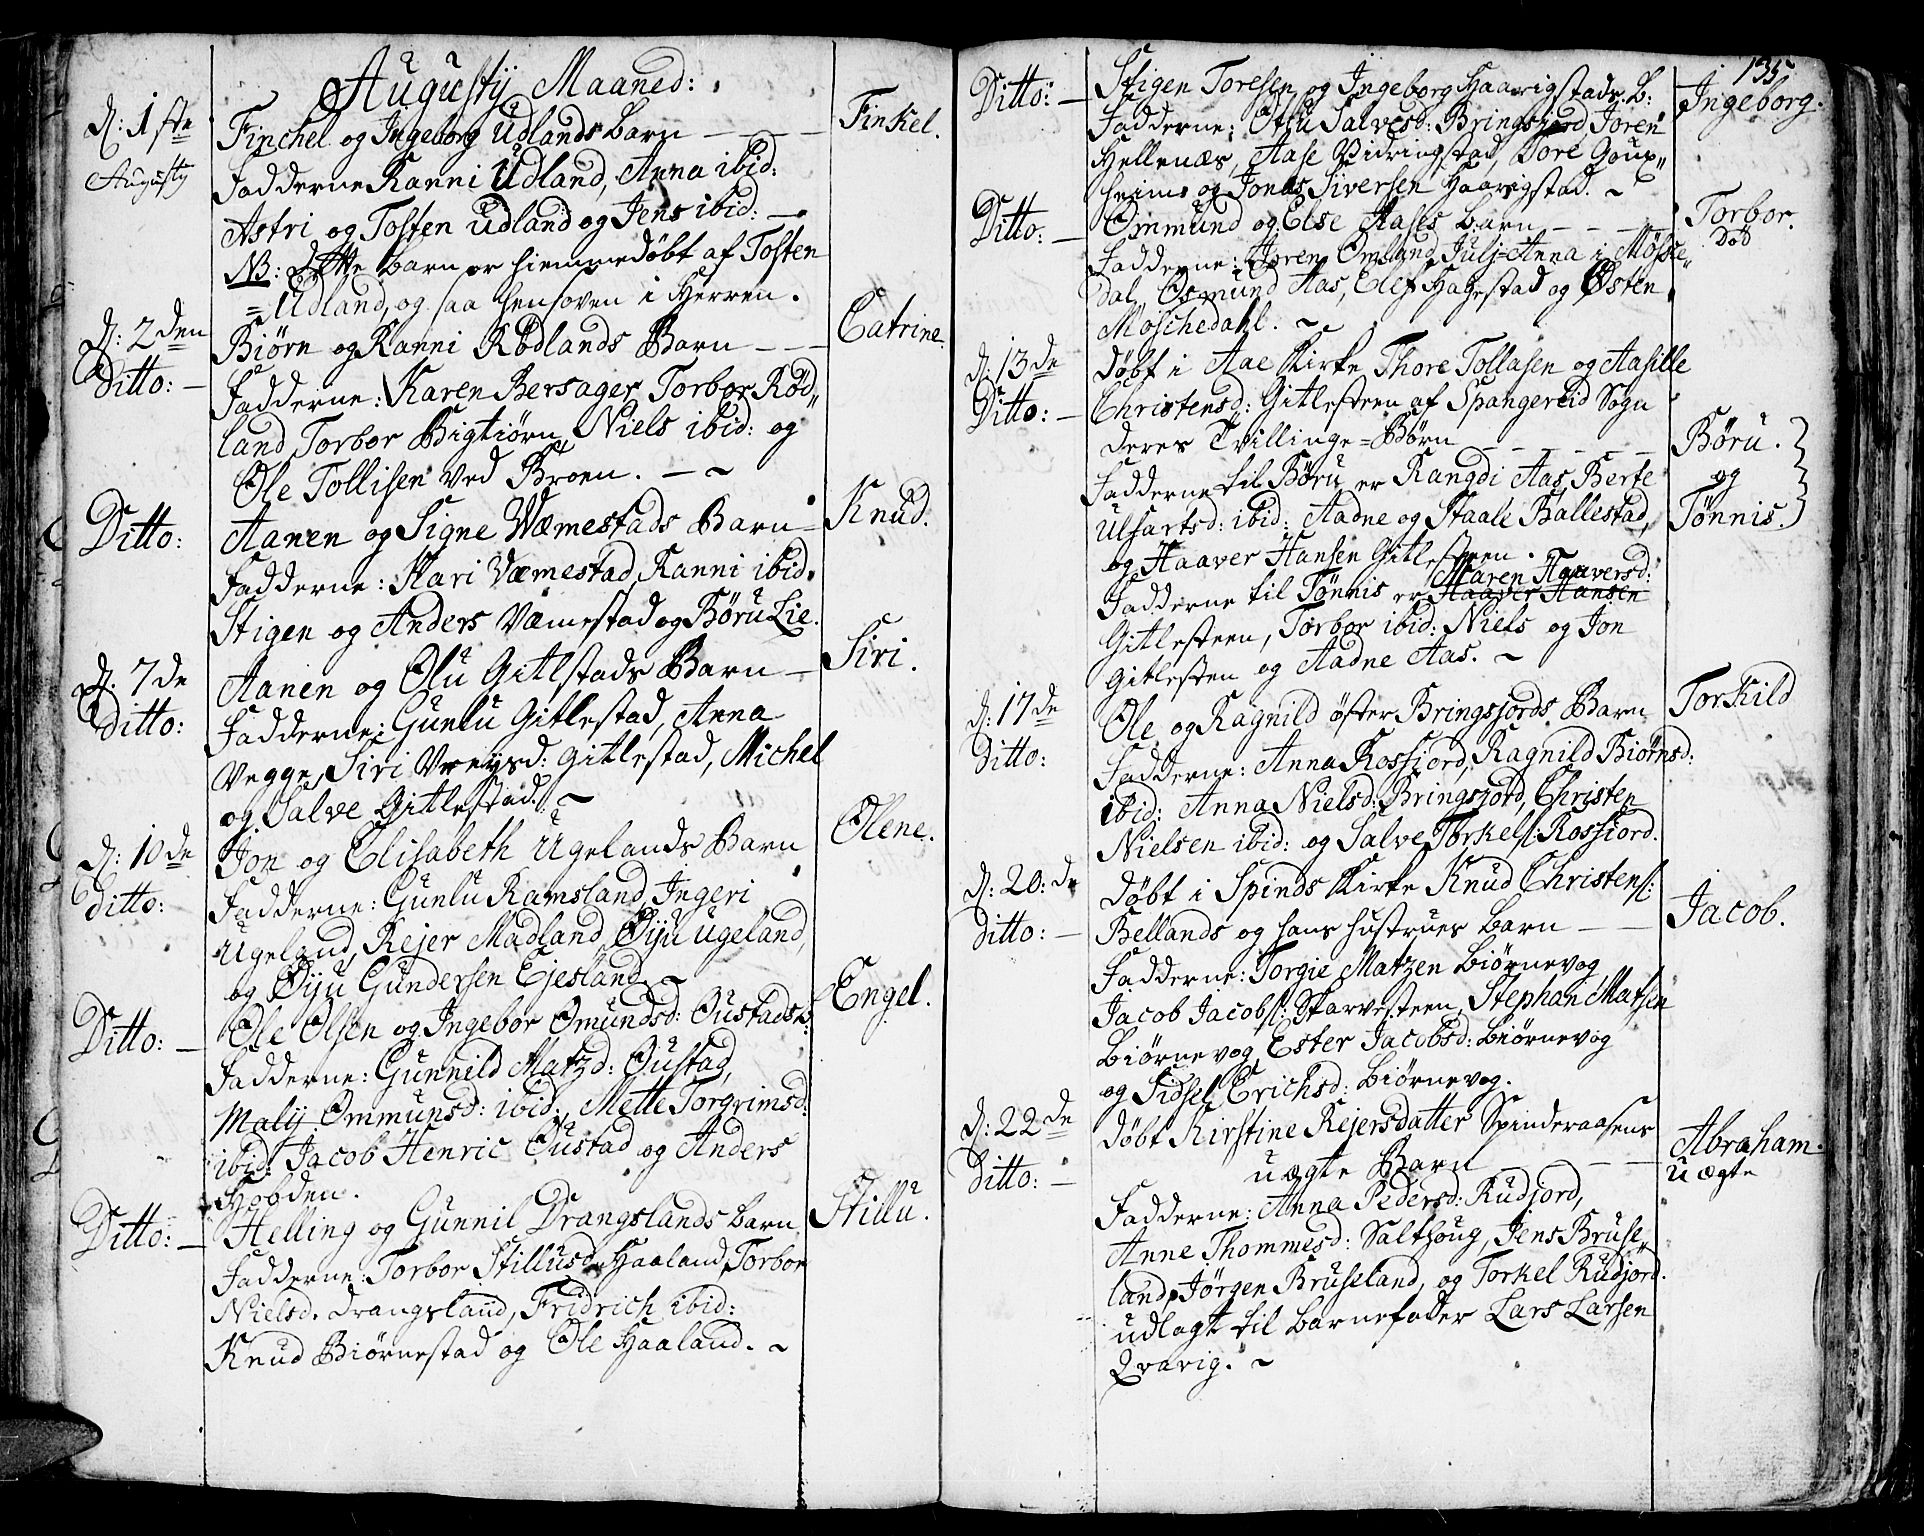 Augustÿ Maaned:
d: 1ste Finchel og Ingeborg Udlands barn — — — Finkel.
Augusty Fadderne Ranni Udland, Anna ibid:
Astri og Tosten Udland og Jens ibid: —
NB: dette barn er hiemmedøbt af Tosten
= Udland, og saa hensoven i Herren.
d: 2den Biørn og Ranni Rødlands Barn — — — Catrine.
Ditto: — Fadderne: Karen Bersager, Torbor Rød„
land, Torbor Bigtiørn, Niels ibid: og
Ole Tollisen ved Broen. — ~
Ditto: Aanen og Signe Væmestads Barn — Knud.
Fadderne: Kari Væmestad, Ranni ibid.
Stigen og Anders Væmestad og Børu Lie.
d: 7de Aanen og Olu Gitlstads Barn — Siri.
Ditto: Fadderne: Gunlu Gitlestad, Anna
Vegge, Siri Vreysd: Gitlestad, Michel
og Salve Gitlestad. ~
d: 10de Jon og Elisabeth Ugelands Barn Olene.
ditto: Fadderne: Gunlu Ramsland, Ingeri
Ugeland, Rejer Madland, Øyu Ugeland,
og Øyu Gundersen Ejesland ~
Ditto: — Ole Olsen og Ingebor Omundsd: Oustads b: Engel.
Fadderne: Gunneld Matzd: Oustad,
Malÿ Ommunsd: ibid:, Mette Torgrimsd:
ibid: Jacob Henric Oustad og Anders
Hobden.
Ditto: — Helling og Gunnil Drangslands barn Stillu.
Fadderne: Torbor Stillusd: Haaland, Torbor
Nielsd. Drangsland, Fridrich ibid:
Knud Biørnestad og Ole Haaland. ~
135
Ditto: — Stigen Toresen og Ingeborg Haarigstads b: Ingeborg.
Fadderne: Othu Salvesd: Bringsjord Joren
Hellenæs, Aase Vidringstad, Tore
heim og Jonas Siversen Haarigstad. ~
Ditto: — Ommund og Else Aases barn — — — Torbor.
Død
Fadderne: Joren Omland, Julj-Anna i Møske„
dal, Osmund Aas, Elef Hagestad og Østen
Møschedahl. ~
d: 13de døbt i Aae Kirke Thore Tollasen og Aasille
Ditto: — Christensd: Gitlesteen af Spangereid Sogn
deres Tvillinge=Børn — — — — — Børu.
Fadderne til Børu er Rangdi Aas, Berte og
Ulfartsd: ibid: Aadne og Staale Ballestad, Tønnis.
og Haaver Hansen Gitlesteen.
Maren Haaversd:
Fadderne til Tønnis er Haaver Hansen
Gitlesteen, Torbor ibid: Niels og Jon
Gitlesten og Aadne Aas. ~
d: 17de Ole og Ragnild øster Bringsjords Barn Torkild
ditto: Fadderne: Anna Rossiord, Ragnild Biørnsd:
ibid: Anna Nielsd: Bringsjord, Christen
Nielsen ibid: og Salve Torkels: Rossiord.
d: 20:de døbt i Spinds Kirke Knud Christens:
ditto: — Bellands og hans hustrues barn — — Jacob.
Fadderne: Torgie Matzen Biørnevog
Jacob Jacobs: Skarvesteen, Stephan Matsen
Biørnevog, Ester Jacobsd: Biørnevog
og Sidsel Erichsd: Biørnevog.
d: 22de døbt Kirstine Rejersdatter Spinderaasens
Ditto: — uægte Barn — — Abraham.
uægte
Fadderne: Anna Pedersd: Rudjord,
Anne Thommesd: Salthoug, Jens Bruse„
land, Jørgen Bruseland, og Torkel Rudjord.
udlagt til barnefader Lars Larsen
Qvarig. ~